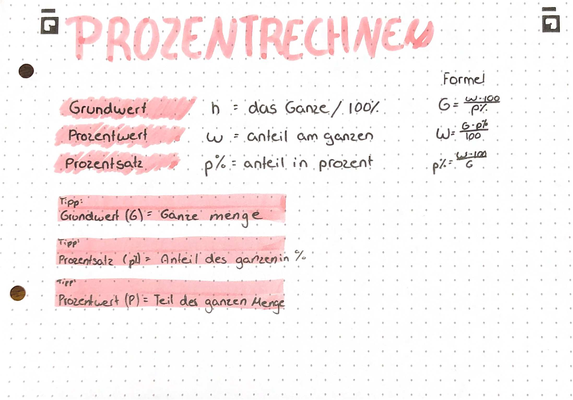 PROZENTRECHNEN
Formel
Grundwert h = das Ganze / 100% G = w·100 / p%
Prozentwert w = anteil am ganzen W = G·p% / 100
Prozentsatz p% = anteil in prozent p% = w·100 / G
Tipp:
Grundwert (G) = Ganze menge
Tipp:
Prozentsatz (p%) = Anteil des ganzen in %
Tipp:
Prozentwert (P) = Teil des ganzen Menge